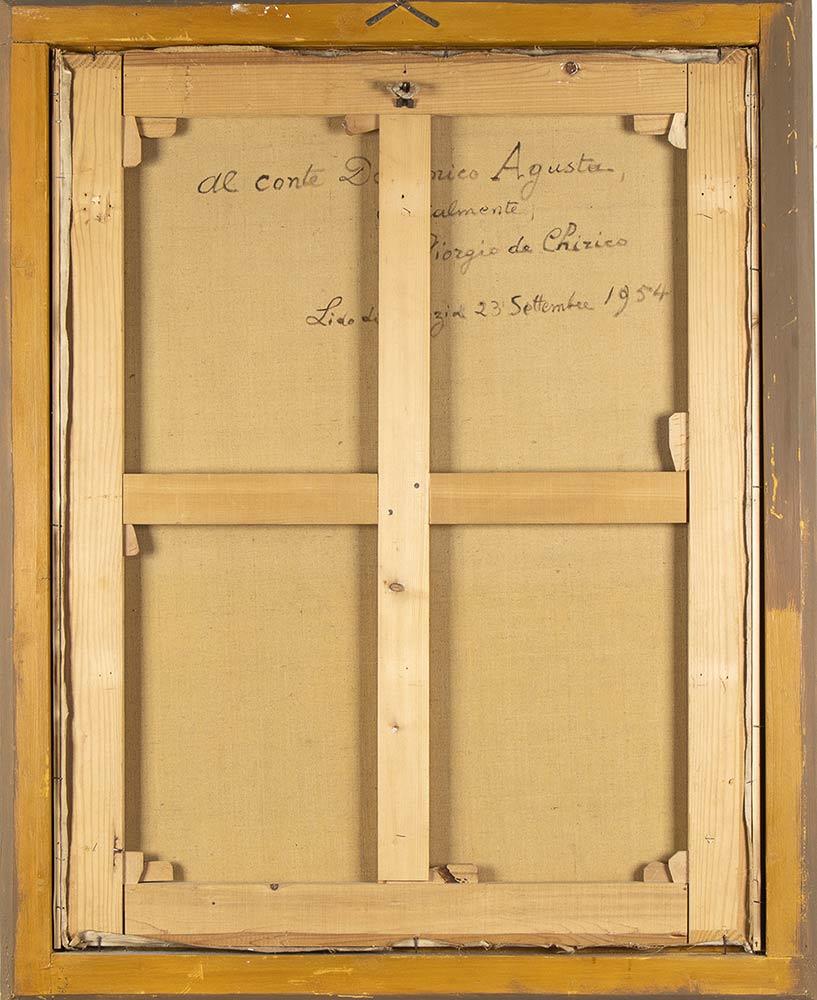 al conte Do nico Agusta,
almente,
iorgio de Chirico
Lido d zia 23 Settembre 1954